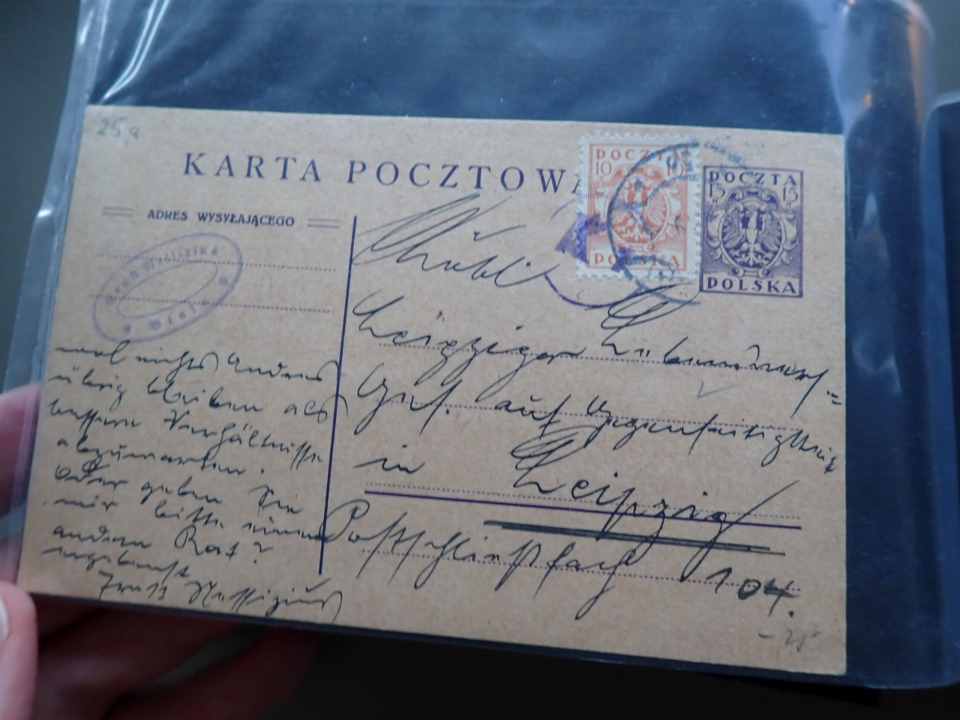 25,a
KARTA POCZTOWA
POCZTA
10 10
POLSKA
POCZTA
15 15
POLSKA
ADRES WYSYŁAJĄCEGO
Löbl.
Leipziger Lebensversich=
Ges. auf Gegenseitigkeit
in Leipzig
Postschließfach 104.
wol nichts Andres
übrig bleiben als
bessere Verhältnisse
abzuwarten.
Oder geben Sie
mir bitte einen
andern Rat?
ergebenst